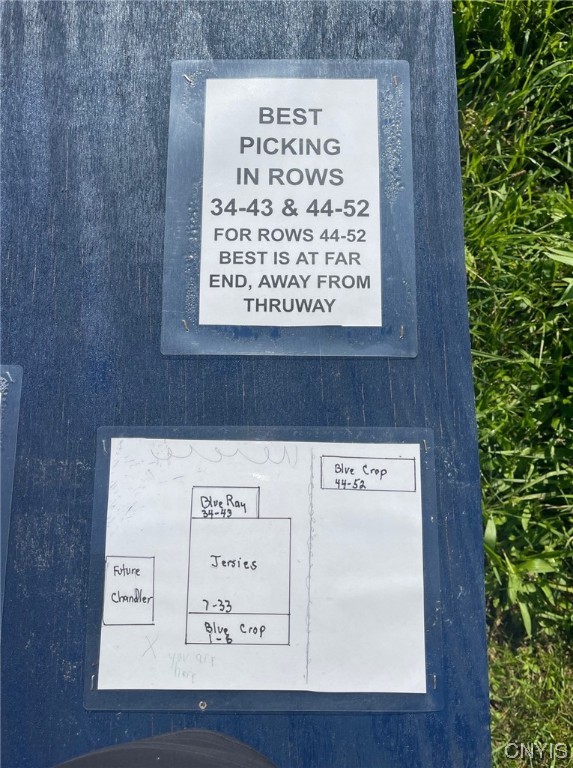 BEST
PICKING
IN ROWS
34-43 & 44-52
FOR ROWS 44-52
BEST IS AT FAR
END, AWAY FROM
THRUWAY
Blue Crop
44-52
Blue Ray
34-43
Jersies
7-33
Future
Chandler
Blue Crop
1-6
X
CNYIS